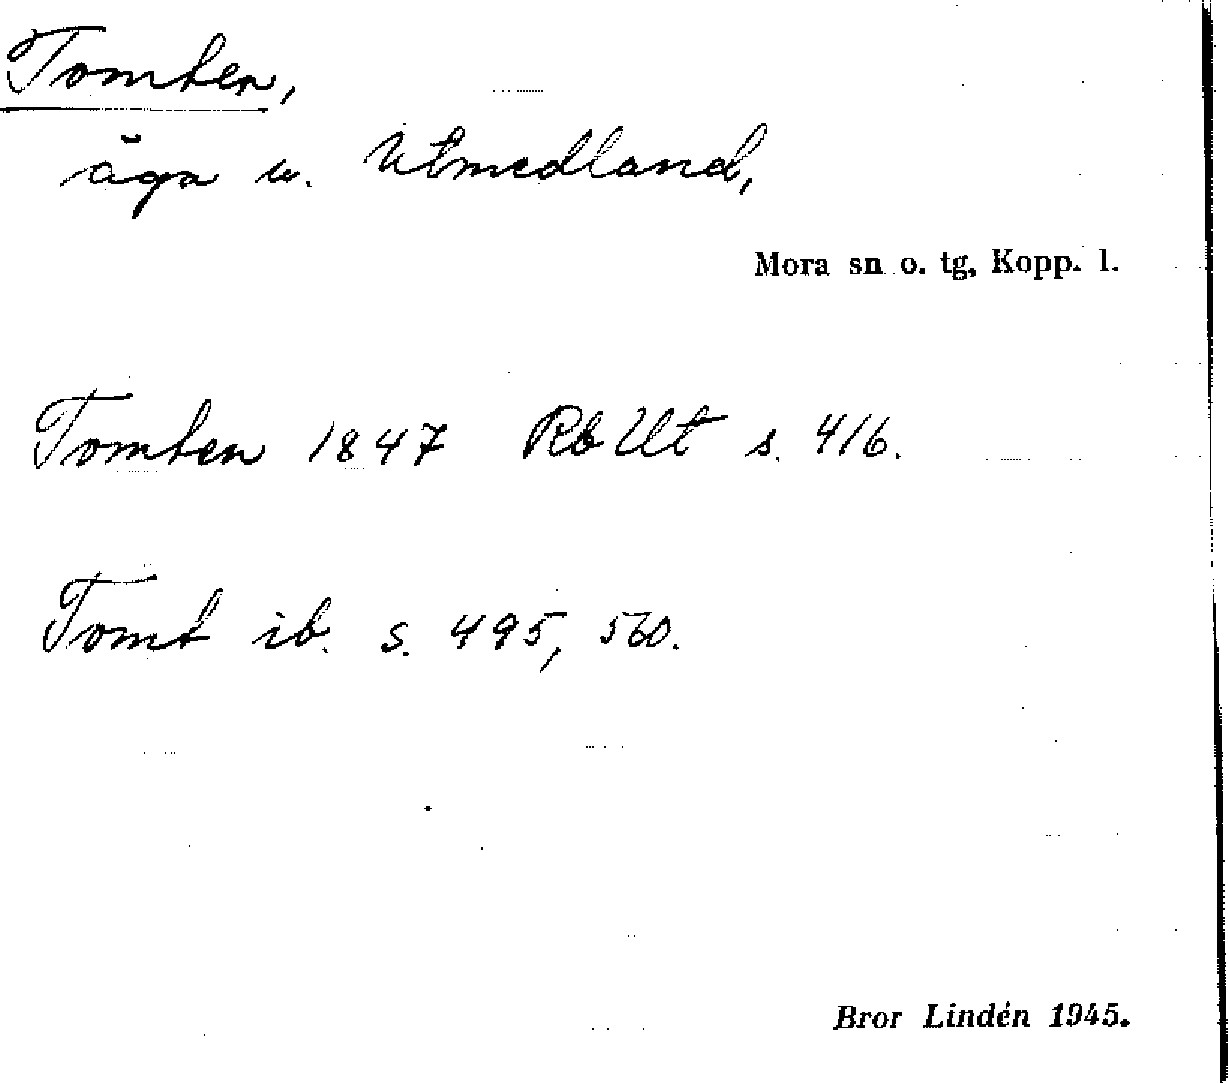 Tomten,
äga u. Utmedland,
Mora sn o. tg, Kopp. l.
Tomten 1847 Rb Ut s. 416.
Tomt ib. s. 495, 560.
Bror Lindén 1945.